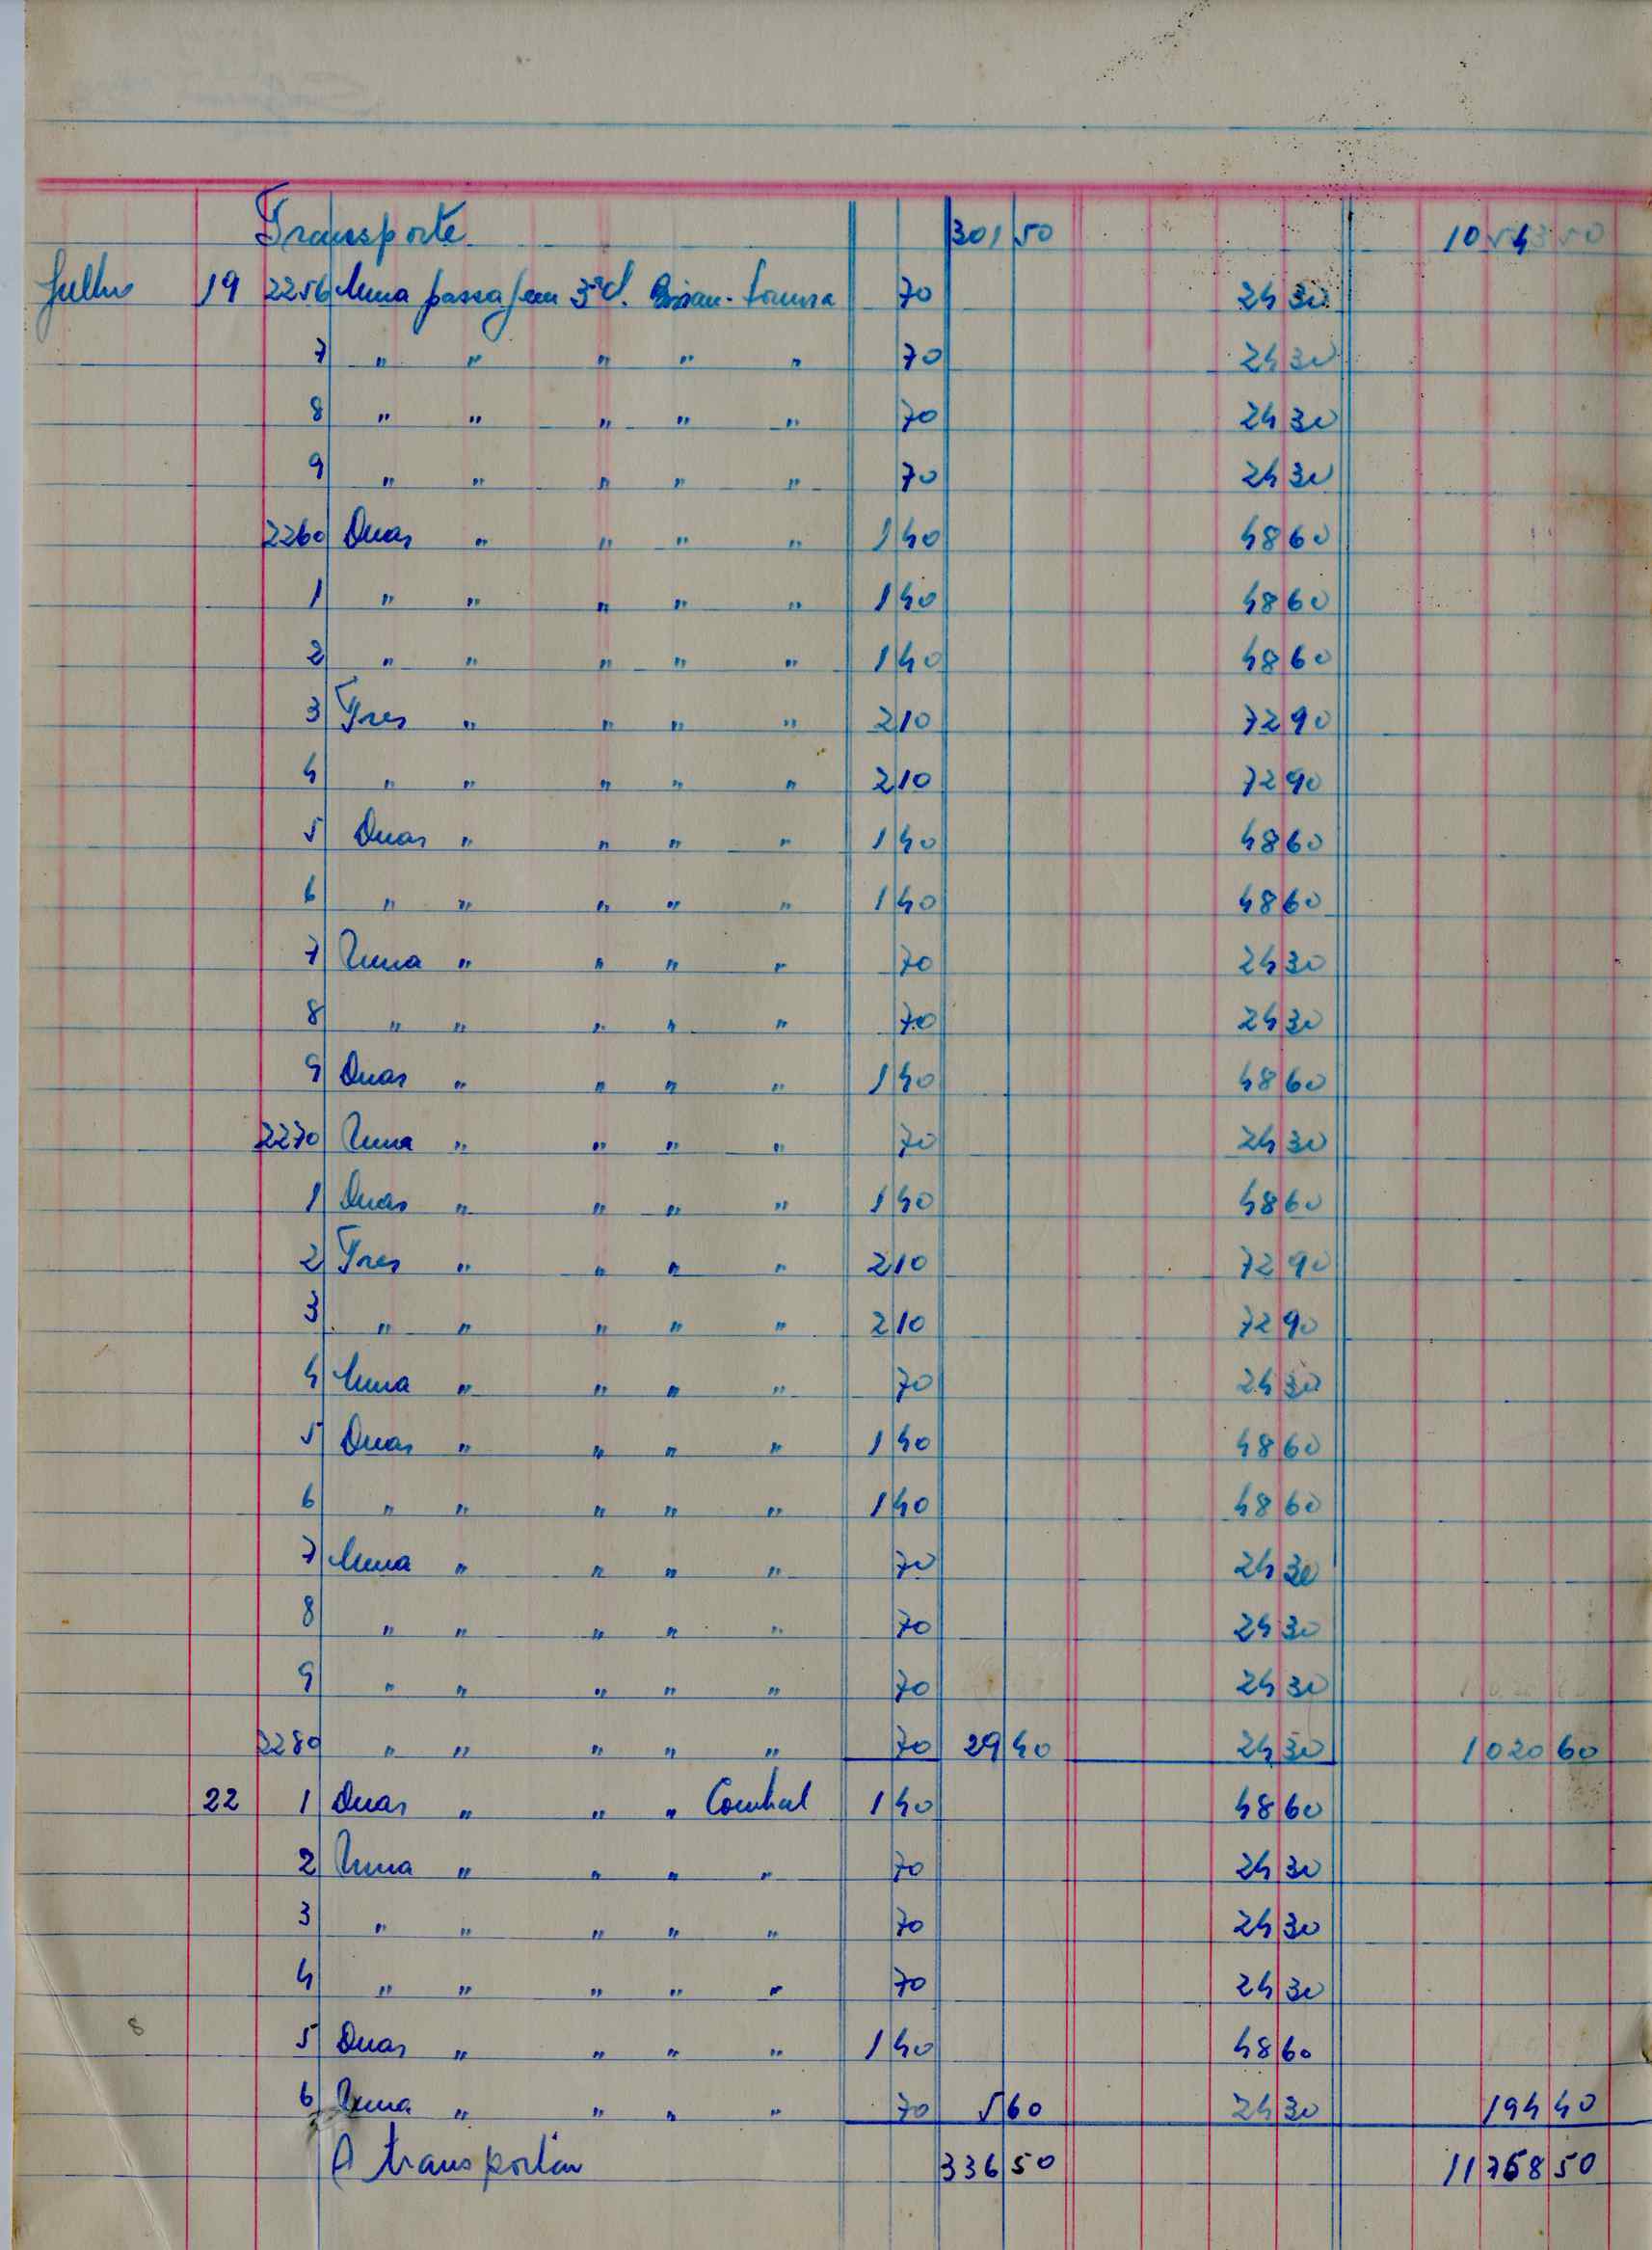 Transporte 301 50 10543 50
Julho 19 2256 Uma passagem 3ª cl. Bissau- 70 24 30
7 " " " " " 70 24 30
8 " " " " " 70 24 30
9 " " " " " 70 24 30
2260 Duas " " " " 140 48 60
1 " " " " " 140 48 60
2 " " " " " 140 48 60
3 Tres " " " " 210 72 90
4 " " " " " 210 72 90
5 Duas " " " " 140 48 60
6 " " " " " 140 48 60
7 Uma " " " " 70 24 30
8 " " " " " 70 24 30
9 Duas " " " " 140 48 60
2270 Uma " " " " 70 24 30
1 Duas " " " " 140 48 60
2 Tres " " " " 210 72 90
3 " " " " " 210 72 90
4 Uma " " " " 70 24 30
5 Duas " " " " 140 48 60
6 " " " " " 140 48 60
7 Uma " " " " 70 24 30
8 " " " " " 70 24 30
9 " " " " " 70 24 30
2280 " " " " " 70 29 40 24 30 1020 60
22 1 Duas " " " 140 48 60
2 Uma " " " " 70 24 30
3 " " " " " 70 24 30
4 " " " " " 70 24 30
8
5 Duas " " " " 140 48 60
6 Uma " " " " 70 5 60 24 30 194 40
A transportar 336 50 11758 50